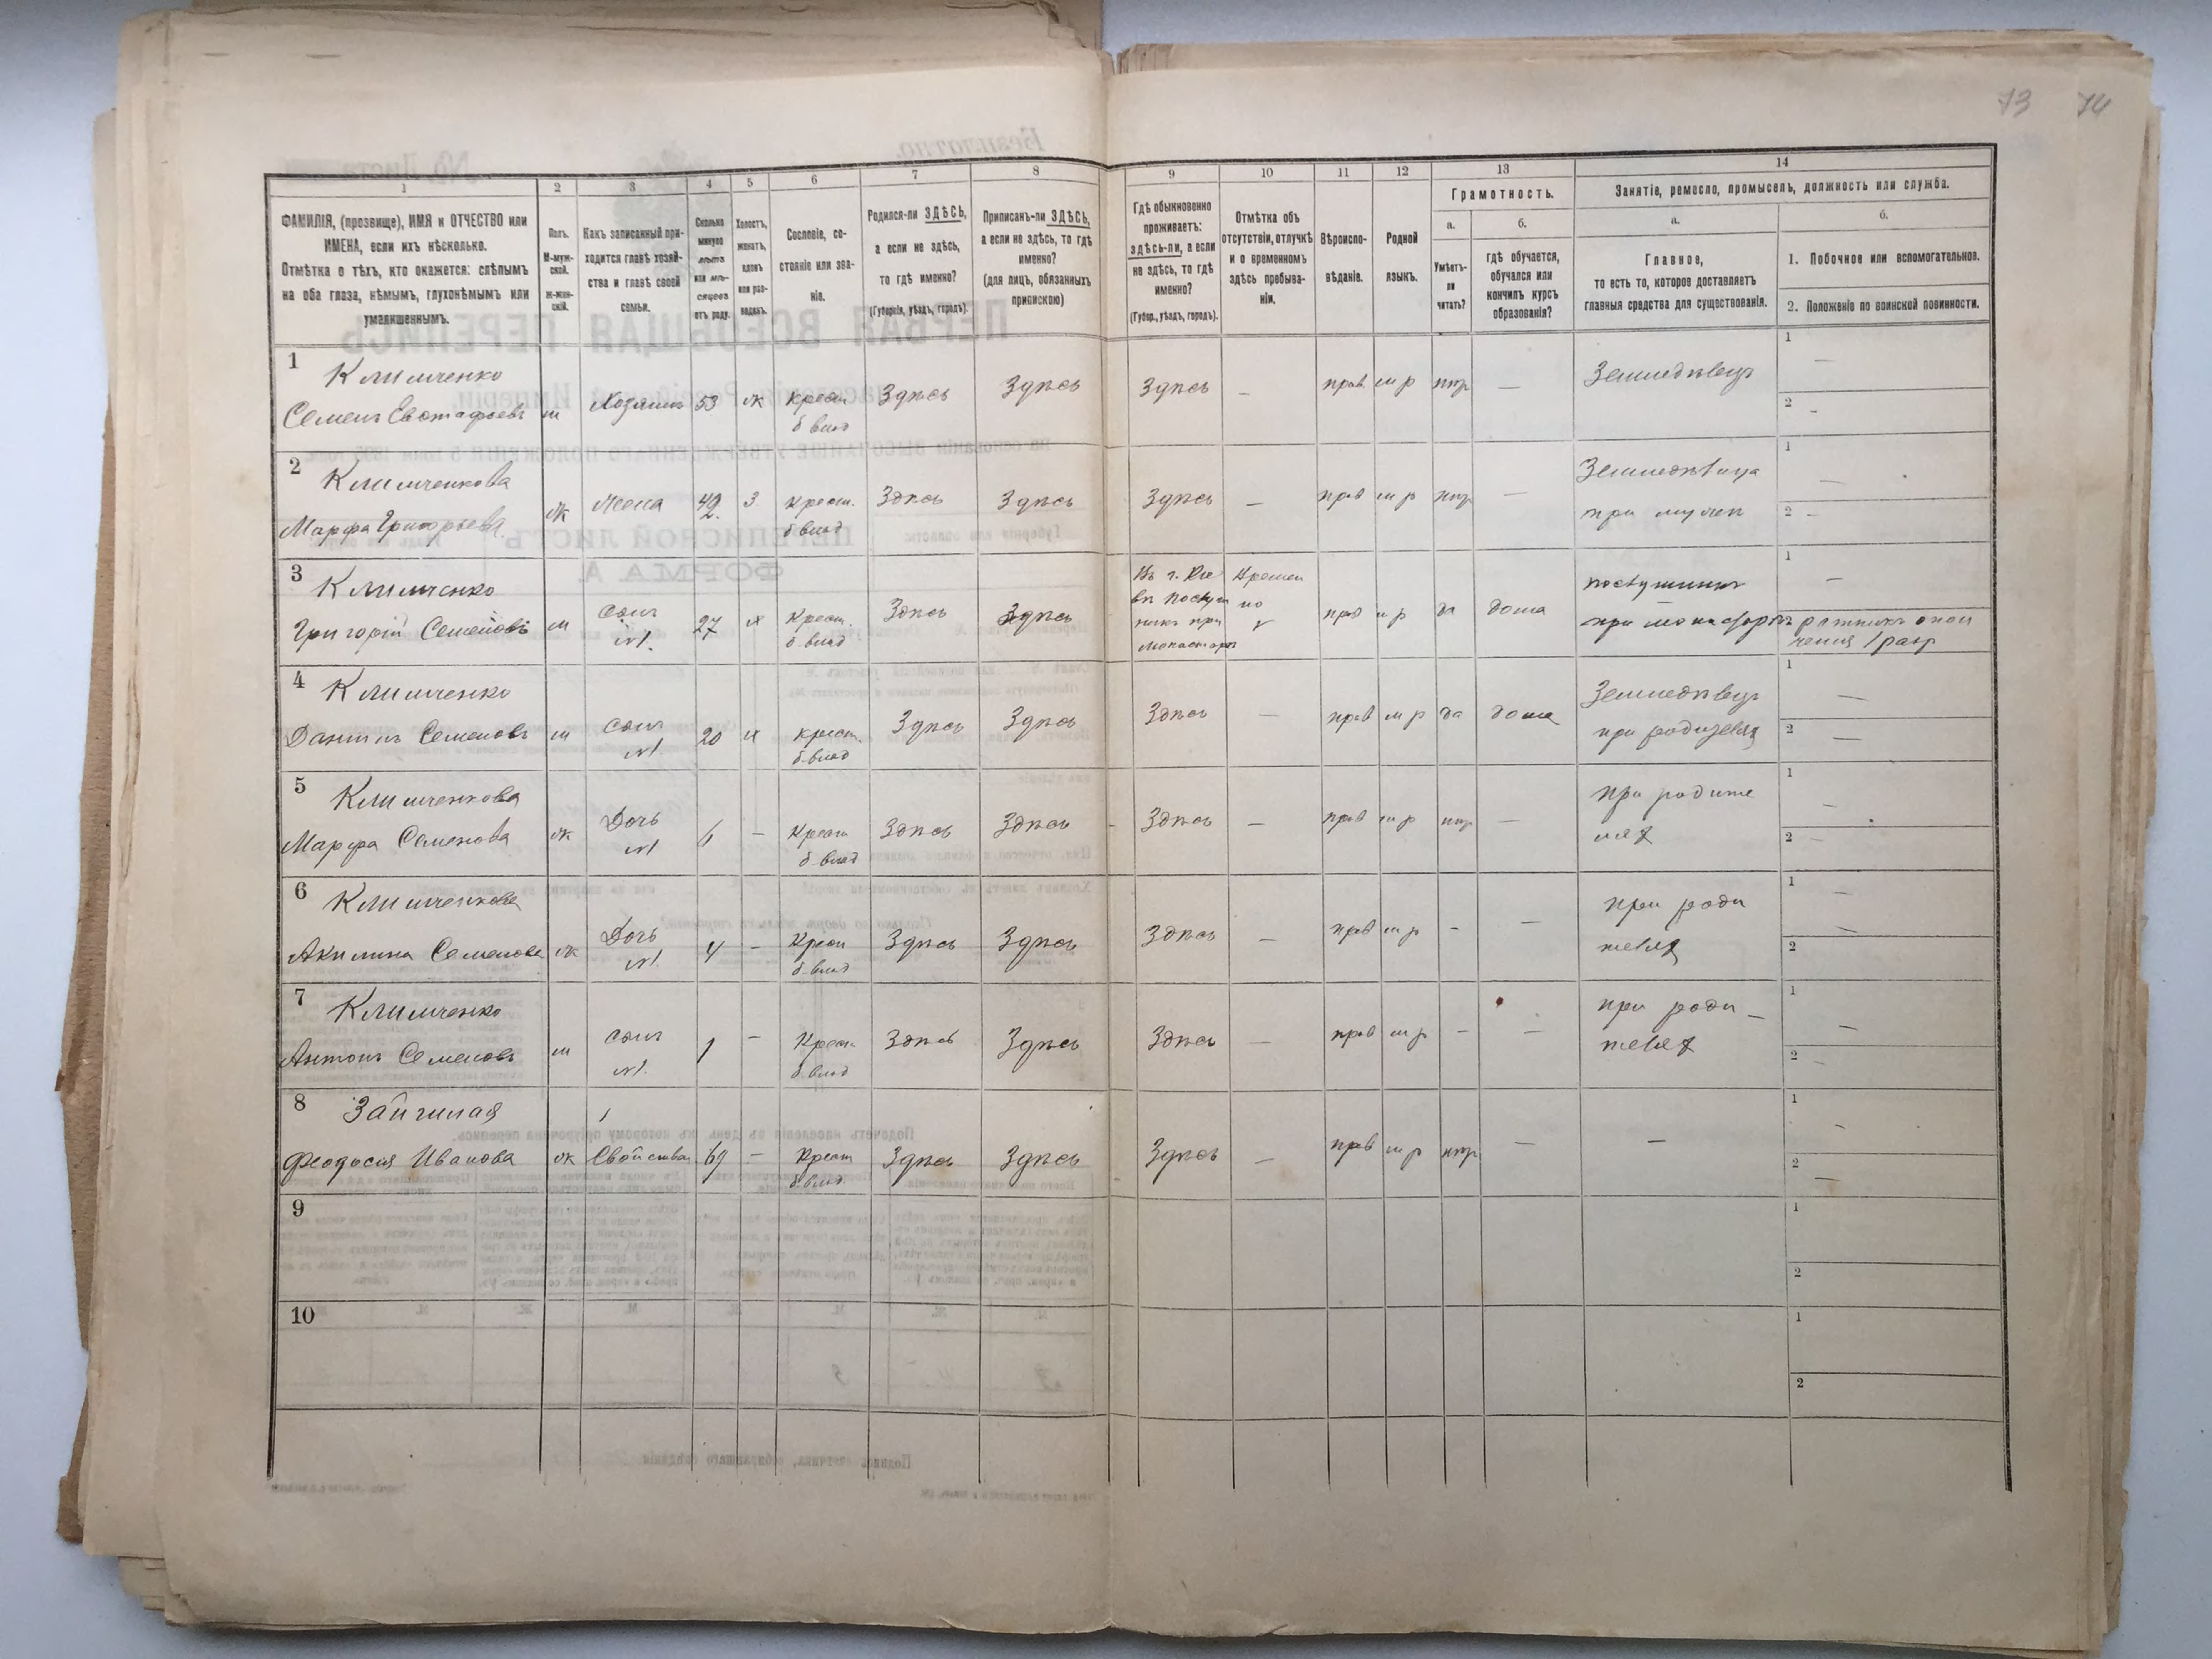 73 74
1 2 3 4 5 6 7 8 9 10 11 12 13 14
ФАМИЛІЯ, (прозвище), ИМЯ и ОТЧЕСТВО или
ИМЕНА, если ихъ нѣсколько.
Отмѣтка о тѣхъ, кто окажется: слѣпымъ
на оба глаза, нѣмымъ, глухонѣмымъ или
умалишеннымъ.
Полъ.
М-муж-
ской.
Ж-жен-
скій.
Какъ записанный при-
ходится главѣ хозяй-
ства и главѣ своей
семьи.
Сколько
минуло
лѣтъ
или мѣ-
сяцевъ
отъ роду.
Холостъ,
женатъ,
вдовъ
или раз-
веденъ.
Сословіе, со-
стояніе или зва-
ніе.
Родился-ли ЗДѢСЬ,
а если не здѣсь,
то гдѣ именно?
(Губернія, уѣздъ, городъ).
Приписанъ-ли ЗДѢСЬ,
а если не здѣсь, то гдѣ
именно?
(для лицъ, обязанныхъ
припискою)
Гдѣ обыкновенно
проживаетъ:
здѣсь-ли, а если
не здѣсь, то гдѣ
именно?
(Губер., уѣздъ, городъ).
Отмѣтка объ
отсутствіи, отлучкѣ
и о временномъ
здѣсь пребыва-
ніи.
Вѣроиспо-
вѣданіе.
Родной
языкъ.
Грамотность.
а.
Умѣетъ-
ли
читать?
б.
гдѣ обучается,
обучался или
кончилъ курсъ
образованія?
Занятіе, ремесло, промыселъ, должность или служба.
а.
Главное,
то есть то, которое доставляетъ
главныя средства для существованія.
б.
1. Побочное или вспомогательное.
2. Положеніе по воинской повинности.
1 Климченко
Семенъ Евстафьевъ м Хозяинъ 53 ж Крест. Здѣсь Здѣсь Здѣсь — прав м р нѣт — Земледѣлец 1 —
б влад 2 -
2 Климченкова Земледѣлица 1 —
Марфа Григорьева ж Жена 42 з Крест. Здѣсь Здѣсь Здѣсь — прав м р нѣт — при мужѣ 2 -
б влад
3 Климченко Въ г. Кіе Времен послушник 1 —
Григорій Семеновъ м сынъ 27 х Крест. Здѣсь Здѣсь въ послуш но прав м р да дома при монастырѣ 2 ратникъ опол
№1. б влад никъ при чения 1 разр
монастырѣ
4 Климченко Земледѣлец 1 —
Семеновъ м сынъ 20 х крест. Здѣсь Здѣсь Здѣсь — прав м р да дома при родителях 2 —
№1 б влад
5 Климченкова при родите 1 —
Марфа Семенова ж Дочь 6 — Крест Здѣсь Здѣсь Здѣсь — прав м р нѣт — лях 2 —
№1 б влад
6 Климченкова при роди 1 —
Акилина Семенова ж Дочь 4 — Крест Здѣсь Здѣсь Здѣсь — прав м р - — телях 2
№1. б влад
7 Климченко при роди 1 —
Антонъ Семеновъ м сынъ 1 — Крест Здѣсь Здѣсь Здѣсь — прав м р — — телях 2 —
№1. б влад
8 1 -
Феодосия Иванова ж Свойствен. 69 — Крест Здѣсь Здѣсь Здѣсь — прав м р нѣт — — 2 —
б влад.
9 1
2
10 1
2